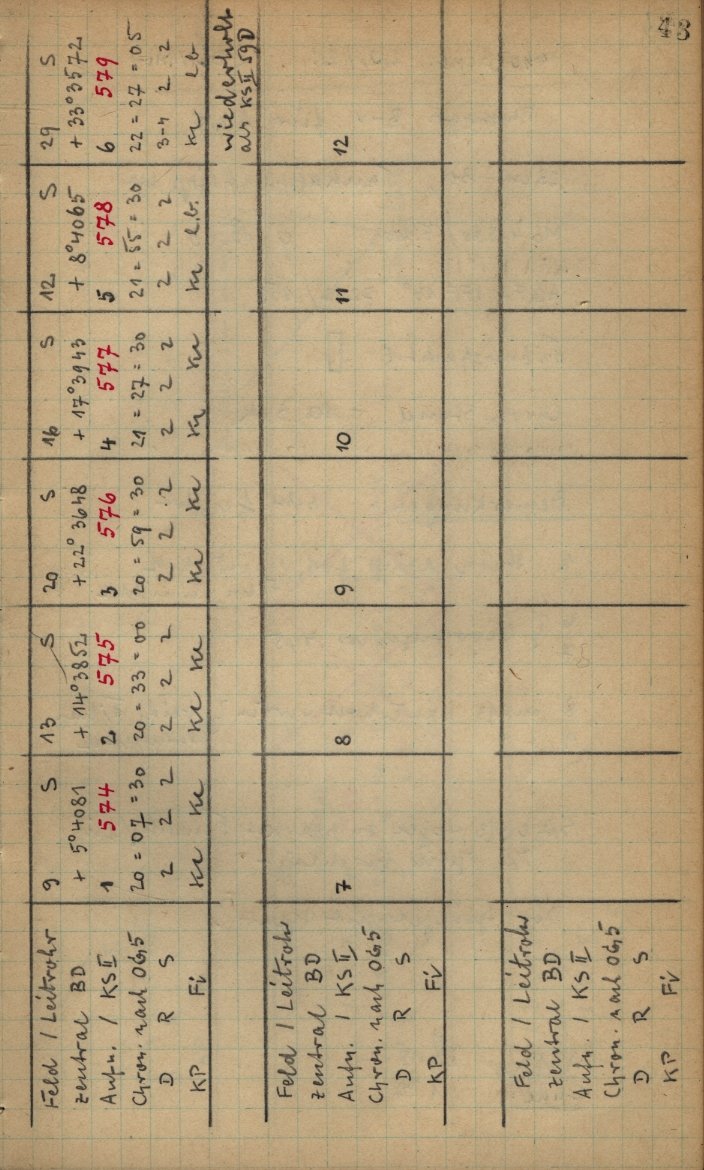 48
Feld / Leitrohr 9 S 13 S 20 S 16 S 12 S 29 S
zentral BD + 5°4081 + 14°3852 + 22°3648 + 17°3943 + 8°4065 + 33°3572
Aufn. / KS II 1 574 2 575 3 576 4 577 5 578 6 579
Chron. nach 06,5 20 = 07 = 30 20 = 33 = 00 20 = 59 = 30 21 = 27 = 30 21 = 55 = 30 22 = 27 = 05
D R S 2 2 2 2 2 2 2 2 2 2 2 2 2 2 2 3-4 2 2
KP Fi Kr Kr Kr Kr Kr Kr Kr Kr Kr L.B. Kr L.B.
wiederholt
als KS II 59D
Feld / Leitrohr
zentral BD
Aufn. / KS II 7 8 9 10 11 12
Chron. nach 06,5
D R S
KP Fi
Feld / Leitrohr
zentral BD
Aufn. / KS II
Chron. nach 06,5
D R S
KP Fi